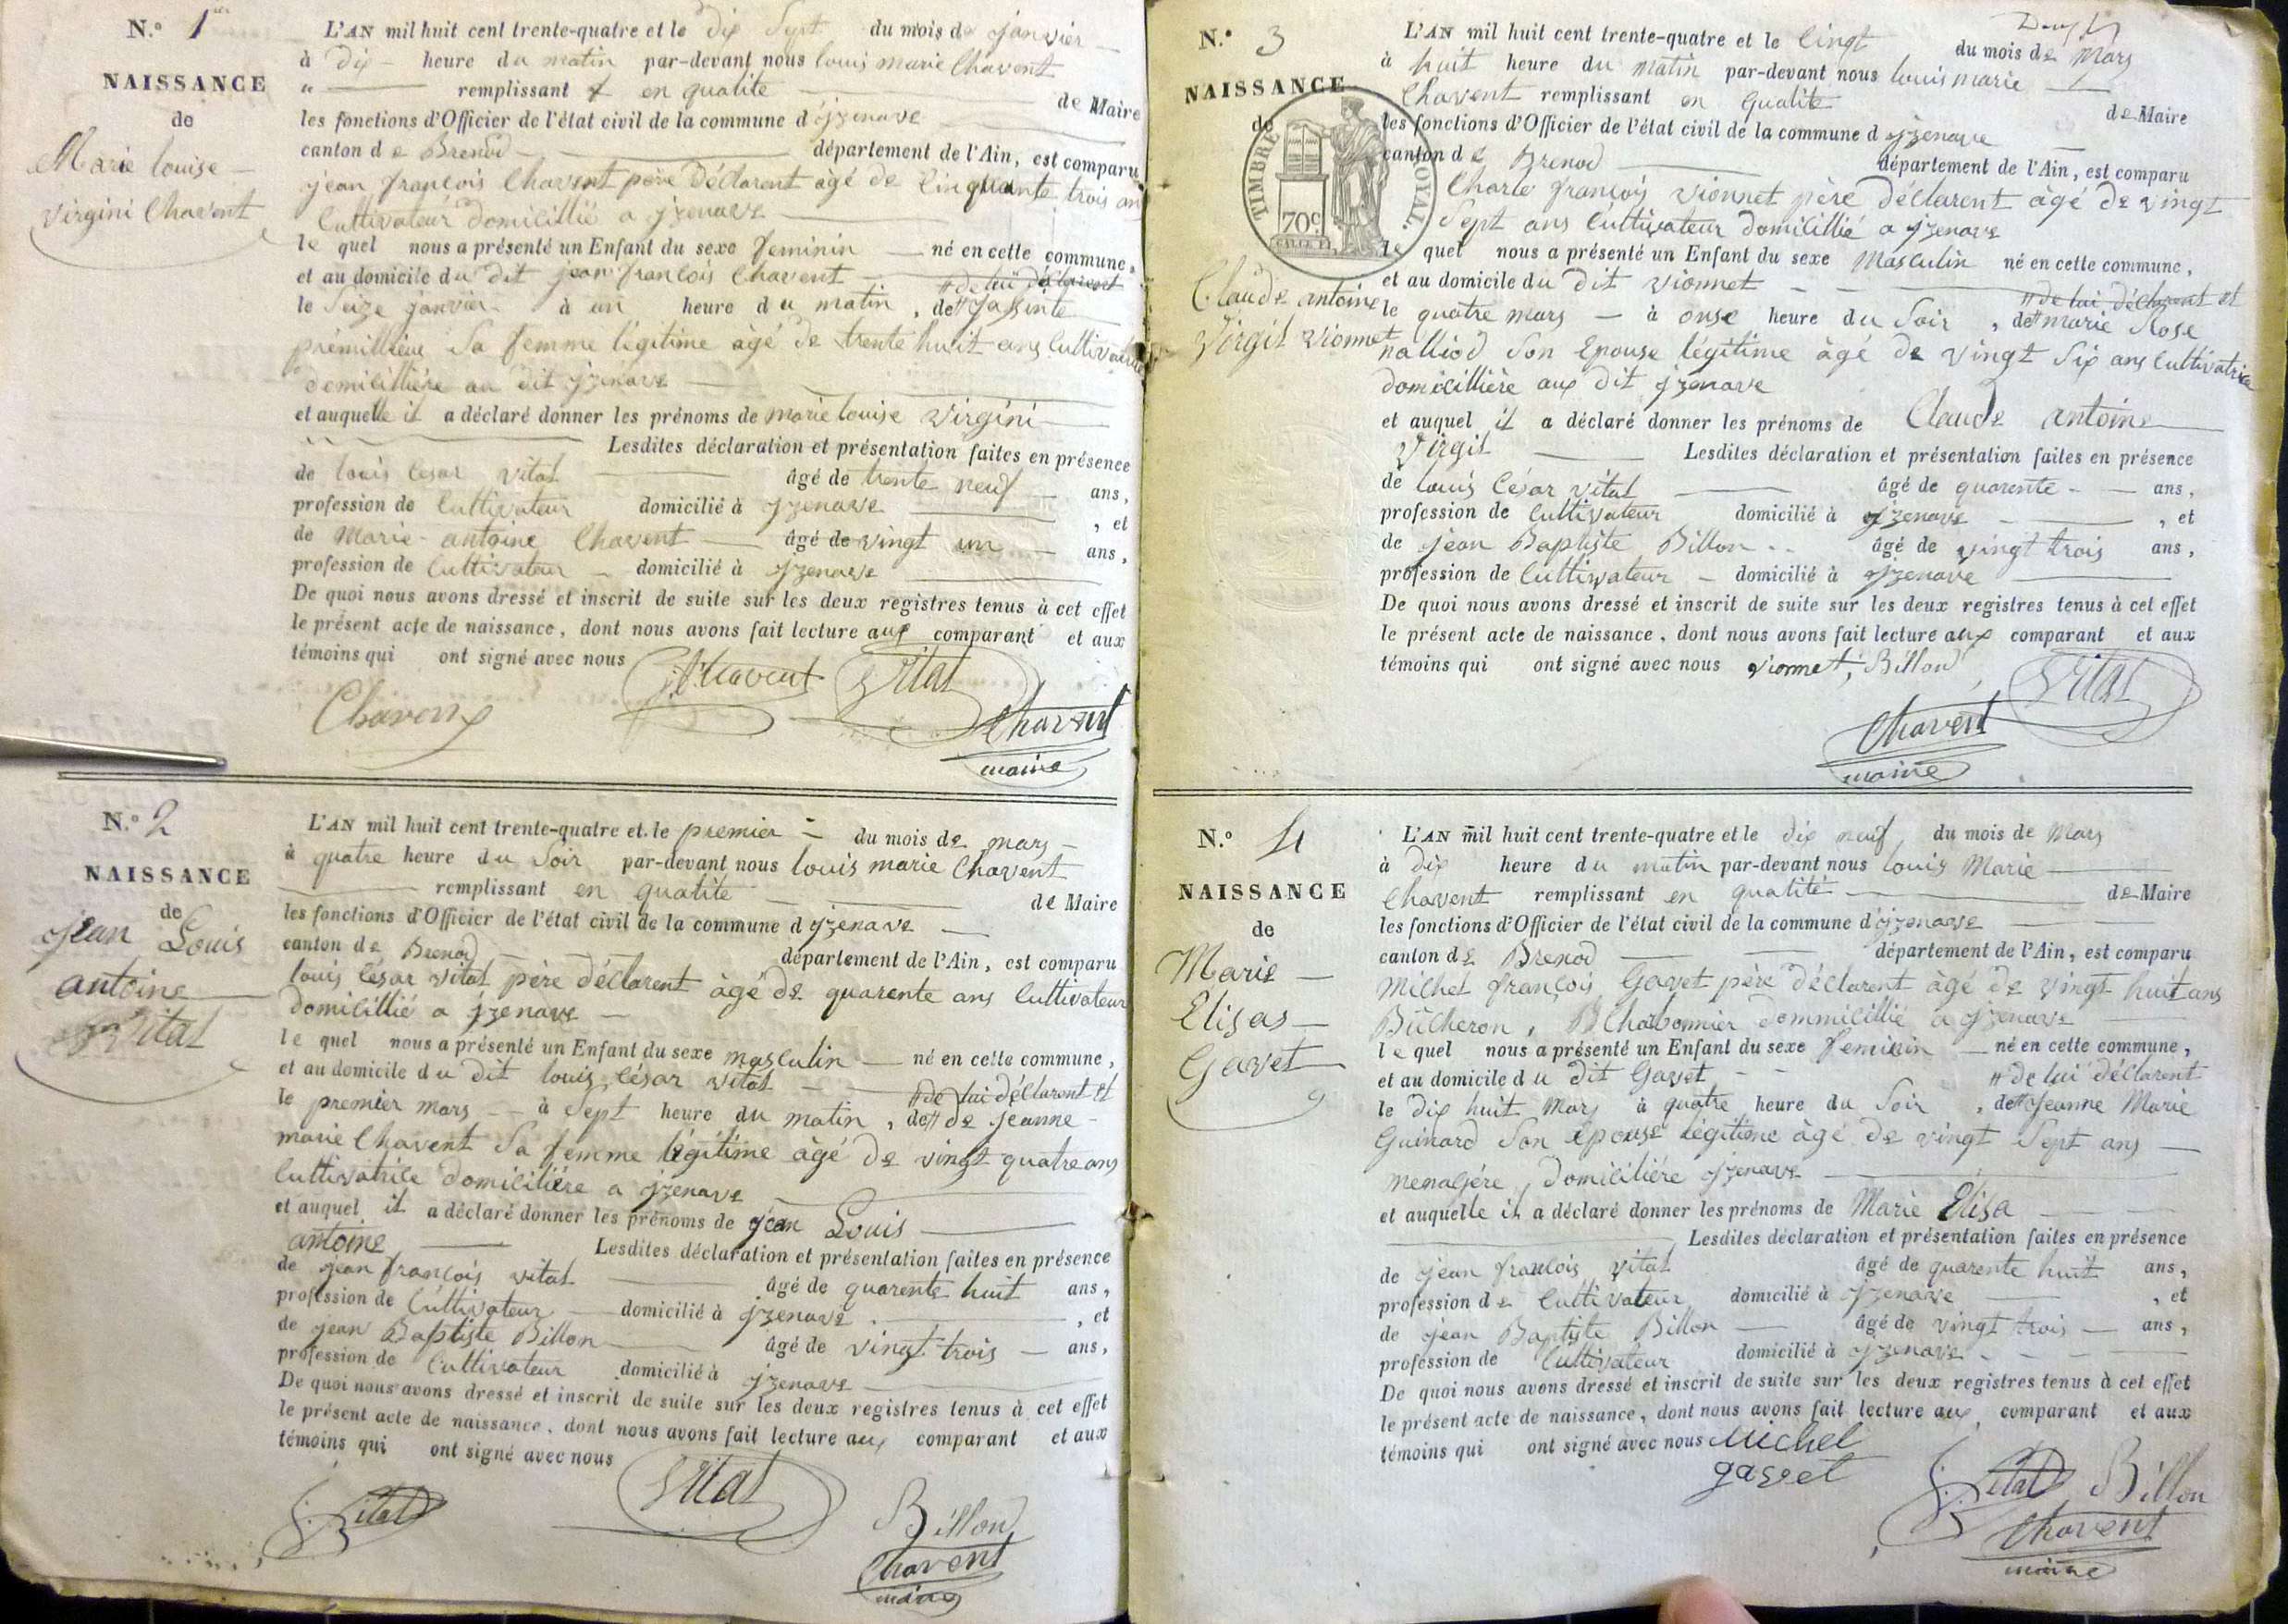 N.° 1er
NAISSANCE
de
Marie louise
virgini Chavent
L'AN mil huit cent trente-quatre et le dix Sept du mois de janvier
à dix heure du matin par-devant nous louis marie Chavent
remplissant en qualité de Maire
les fonctions d'Officier de l'état civil de la commune d'jzenave
canton de Brenod département de l'Ain, est comparu
jean françois Chavent père déclarent âgé de Cinquante trois an
Cultivateur domicillié a jzenave
le quel nous a présenté un Enfant du sexe feminin né en cette commune,
et au domicile du dit jean françois Chavent # de lui déclarent
le Seize janvier à un heure du matin, de # jassinte
prémillieue Sa femme légitime âgé de trente huit ans Cultivatrice
domicillière au dit jzenave
et auquelle il a déclaré donner les prénoms de marie louise virgini
Lesdites déclaration et présentation faites en présence
de louis Cesar vital âgé de trente neuf ans,
profession de Cultivateur domicilié à jzenave , et
de Marie antoine Chavent âgé de vingt un ans,
profession de Cultivateur domicilié à jzenave
De quoi nous avons dressé et inscrit de suite sur les deux registres tenus à cet effet
le présent acte de naissance, dont nous avons fait lecture aux comparant et aux
témoins qui ont signé avec nous
Chavent Vital
Chavent
maire
N.° 2
NAISSANCE
de
jean Louis
antoine
Vital
L'AN mil huit cent trente-quatre et le premier du mois de mars
à quatre heure du Soir par-devant nous louis marie Chavent
remplissant en qualité de Maire
les fonctions d'Officier de l'état civil de la commune d jzenave
canton de Brenod département de l'Ain, est comparu
louis César vital père déclarent âgé de quarente ans Cultivateur
domicillié a jzenave
le quel nous a présenté un Enfant du sexe masculin né en cette commune,
et au domicile du dit louis César vital # de lui déclarent et
le premier mars à Sept heure du matin, de # de jeanne
marie Chavent Sa femme légitime âgé de vingt quatre ans
Cultivatrice domicilière a jzenave
et auquel il a déclaré donner les prénoms de jean Louis
antoine Lesdites déclaration et présentation faites en présence
de jean françois vital âgé de quarente huit ans,
profession de Cultivateur domicilié à jzenave , et
de jean Baptiste Billon âgé de vingt trois ans,
profession de Cultivateur domicilié à jzenave
De quoi nous avons dressé et inscrit de suite sur les deux registres tenus à cet effet
le présent acte de naissance, dont nous avons fait lecture aux comparant et aux
témoins qui ont signé avec nous
Vital Vital Billon
Chavent
maire
N.° 3
NAISSANCE
de
TIMBRE ROYAL
70c
Claude antoine
Virgil vionnet
L'AN mil huit cent trente-quatre et le Cinqt du mois de Mars
à huit heure du matin par-devant nous louis marie
Chavent remplissant en qualité de Maire
les fonctions d'Officier de l'état civil de la commune d jzenave
canton de Brenod département de l'Ain, est comparu
Charle françois vionnet père déclarent âgé de vingt
Sept ans Cultivateur domicillié a jzenave
le quel nous a présenté un Enfant du sexe Masculin né en cette commune,
et au domicile du dit vionnet # de lui déclarent et
le quatre mars à onse heure du Soir, de # marie Rose
nalliod Son Epouse légitime âgé de vingt Six ans Cultivatrice
domicillière aux dit jzenave
et auquel il a déclaré donner les prénoms de Claude antoine
Virgil Lesdites déclaration et présentation faites en présence
de louis César vital âgé de quarente ans,
profession de Cultivateur domicilié à jzenave , et
de jean Baptiste Billon âgé de vingt trois ans,
profession de Cultivateur domicilié à jzenave
De quoi nous avons dressé et inscrit de suite sur les deux registres tenus à cet effet
le présent acte de naissance, dont nous avons fait lecture aux comparant et aux
témoins qui ont signé avec nous vionnet, Billon Vital
Chavent
maire
N.° 4
NAISSANCE
de
Marie
Elisas
Gavet
L'AN mil huit cent trente-quatre et le dix neuf du mois de Mars
à dix heure du matin par-devant nous louis Marie
Chavent remplissant en qualité de Maire
les fonctions d'Officier de l'état civil de la commune d'jzenave
canton de Brenod département de l'Ain, est comparu
Michel françois Gavet père déclarent âgé de vingt huit ans
Bûcheron, Charbonnier dommicillié a jzenave
le quel nous a présenté un Enfant du sexe feminin né en cette commune,
et au domicile du dit Gavet # de lui déclarent
le dix huit Mars à quatre heure du Soir, de # jeanne Marie
Guinard Son épouse légitime âgé de vingt Sept ans
menagére, domiciliére jzenave
et auquelle il a déclaré donner les prénoms de Marie Elisa
Lesdites déclaration et présentation faites en présence
de jean françois vital âgé de quarente huit ans,
profession de Cultivateur domicilié à jzenave , et
de jean Baptiste Billon âgé de vingt trois ans,
profession de Cultivateur domicilié à jzenave
De quoi nous avons dressé et inscrit de suite sur les deux registres tenus à cet effet
le présent acte de naissance, dont nous avons fait lecture aux comparant et aux
témoins qui ont signé avec nous Michel
gavet Vital Billon
Chavent
maire